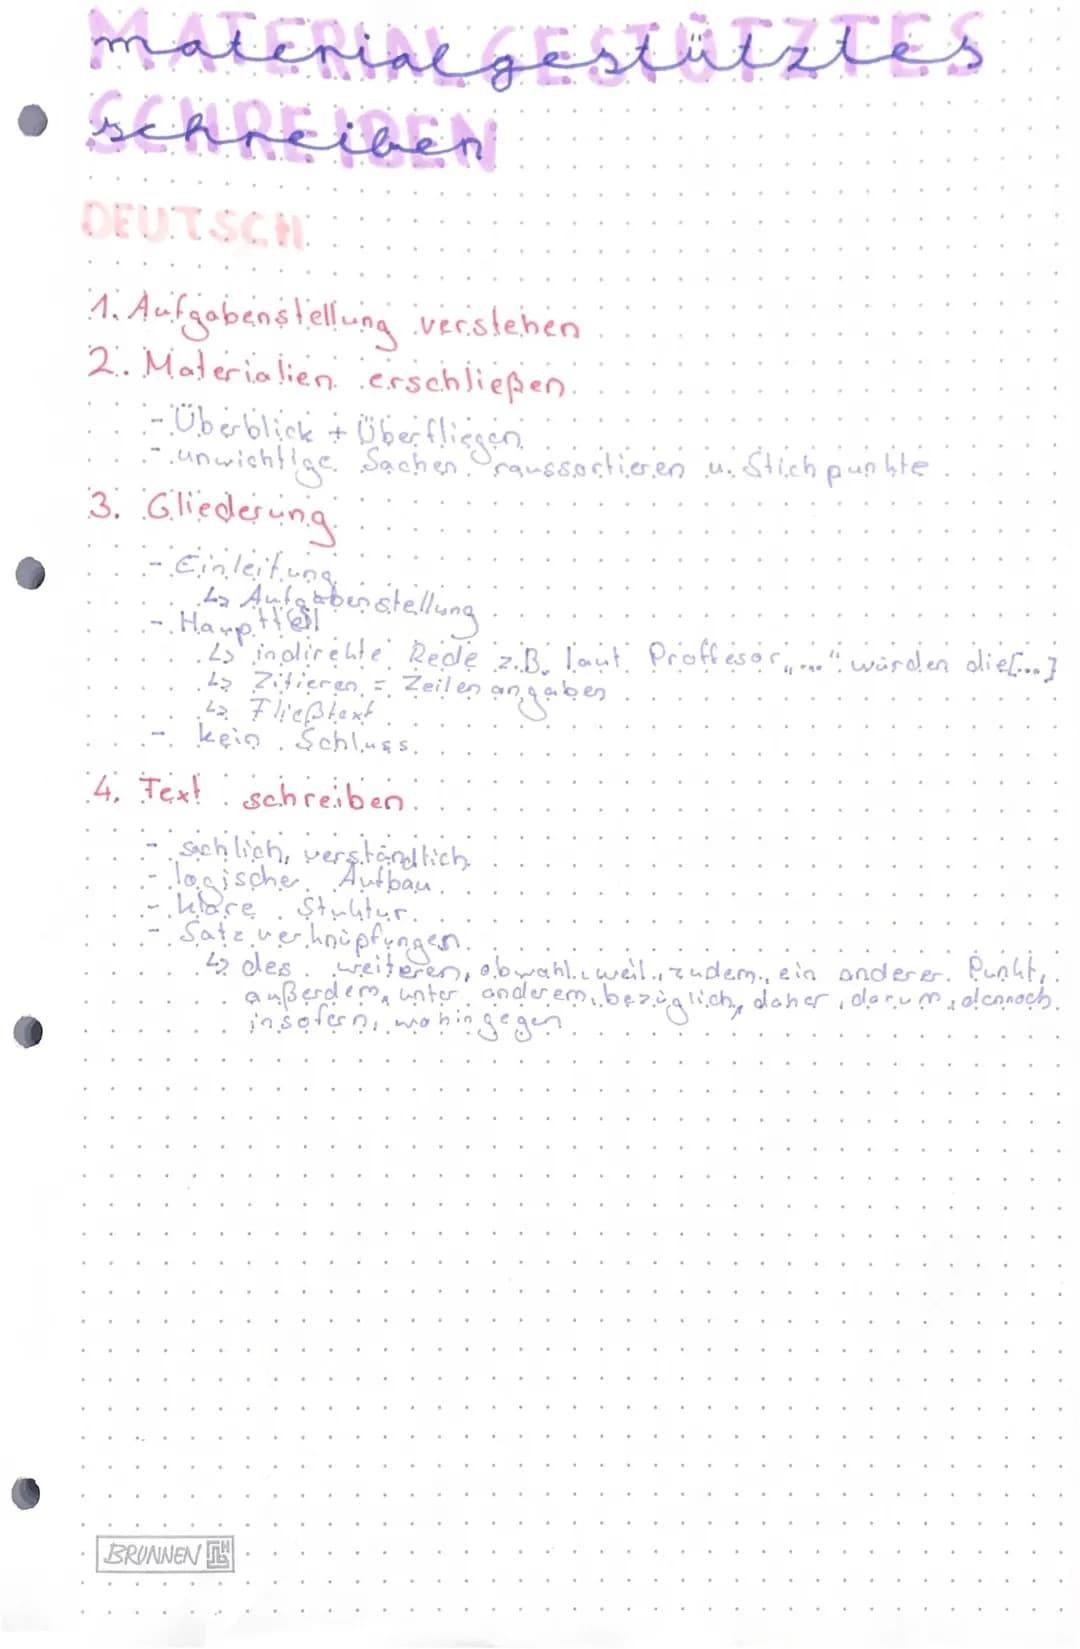 materialgestütztes
schreiben
DEUTSCH
1. Aufgabenstellung verstehen
2. Materialien erschließen
- Überblick + Überfliegen
- unwichtige Sachen raussortieren u. Stichpunkte
3. Gliederung
- Einleitung
↳ Aufgabenstellung
- Hauptteil
↳ indirekte Rede z.B. laut Proffesor „..." würden die[...]
↳ Zitieren = Zeilen angaben
↳ Fließtext
- kein Schluss
4. Text schreiben
- sachlich, verständlich
- logischer Aufbau
- klare Stuktur
- Satzverknüpfungen
↳ des weiteren, obwahl, weil, zudem, ein anderer Punkt,
außerdem, unter anderem, bezüglich, daher, darum, dennoch
insofern, wohingegen
BRUNNEN